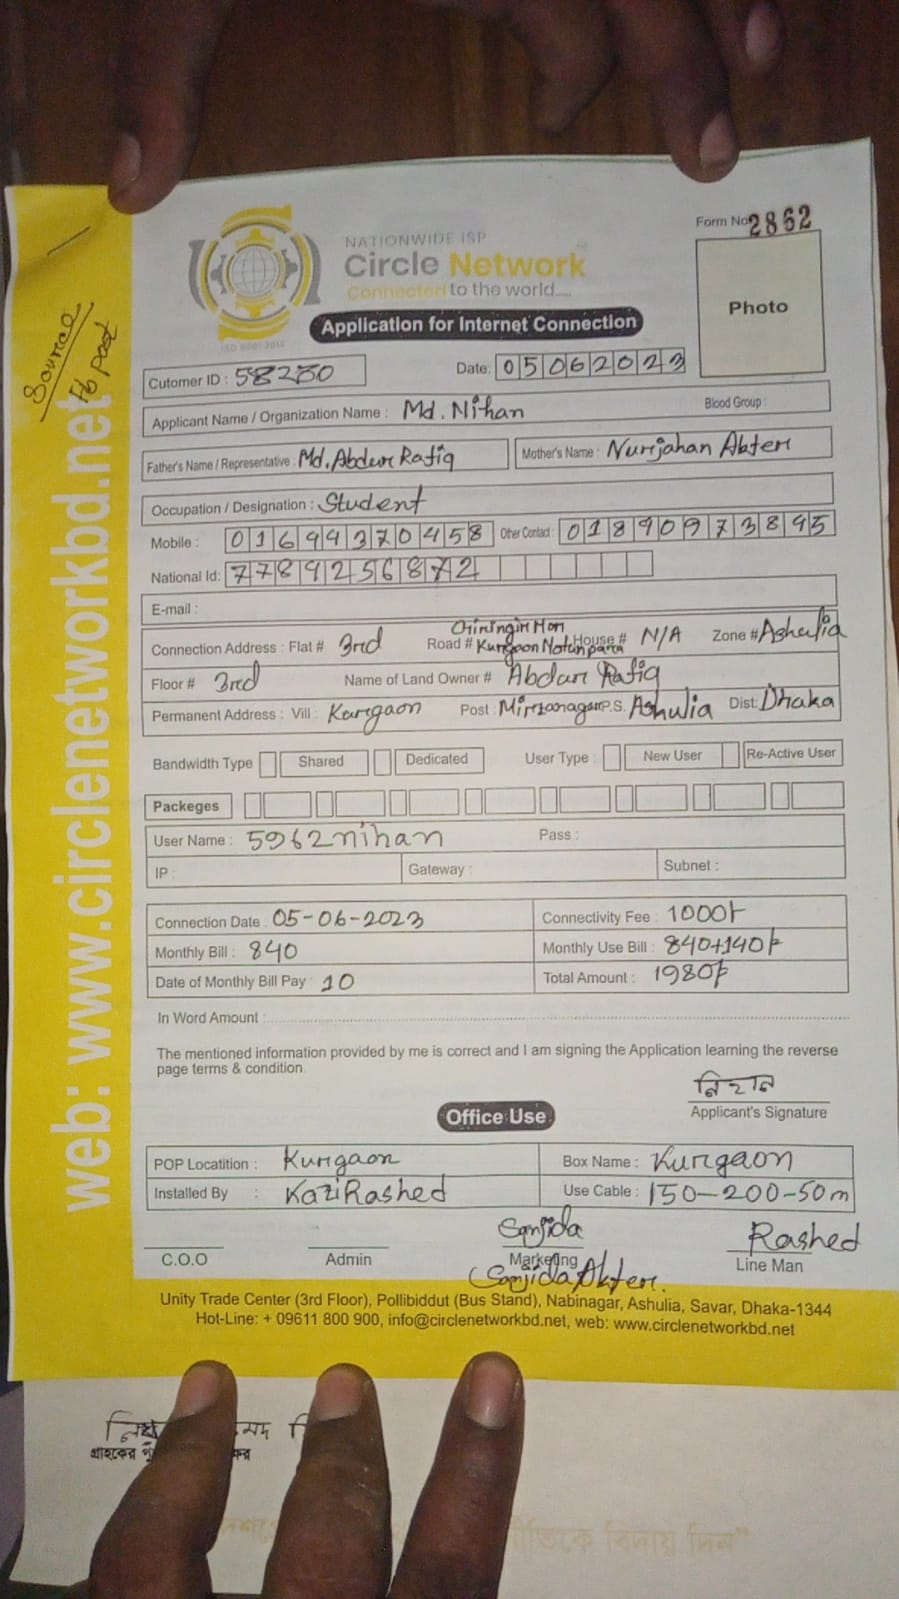 Form No 2862
NATIONWIDE ISP
Circle Network
Connected to the world....
ISO 9001:2015
Photo
Application for Internet Connection
Source
Fb post
Cutomer ID : 58230
Date: 05062023
Applicant Name / Organization Name : Md. Nihan Blood Group :
Father's Name / Representative : Md. Abdur Rafiq Mother's Name : Nurjahan Akter
Occupation / Designation : Student
Mobile : 01694370458 Other Contact : 01890973895
National Id: 7789256872
E-mail :
Connection Address : Flat # 3rd Road # Kurgaon Notunpara House # N/A Zone # Ashulia
Floor # 3rd Name of Land Owner # Abdur Rafiq
Permanent Address : Vill : Kurgaon Post : Mirzanagar P.S. Ashulia Dist: Dhaka
Bandwidth Type Shared Dedicated User Type : New User Re-Active User
Packeges
User Name : 5962nihan Pass :
IP : Gateway : Subnet :
Connection Date : 05-06-2023 Connectivity Fee : 1000/-
Monthly Bill : 840 Monthly Use Bill : 840+140/-
Date of Monthly Bill Pay : 10 Total Amount : 1980/-
In Word Amount :
The mentioned information provided by me is correct and I am signing the Application learning the reverse
page terms & condition.
নিহান
Applicant's Signature
Office Use
POP Locatition : Kurgaon Box Name : Kurgaon
Installed By : Kazi Rashed Use Cable : 150-200-50m
Sanjida Rashed
C.O.O Admin Marketing Line Man
(Sanjida Akter.
Unity Trade Center (3rd Floor), Pollibiddut (Bus Stand), Nabinagar, Ashulia, Savar, Dhaka-1344
Hot-Line: + 09611 800 900, info@circlenetworkbd.net, web: www.circlenetworkbd.net
web: www.circlenetworkbd.net
গ্রাহকের
বিদায় দিন"